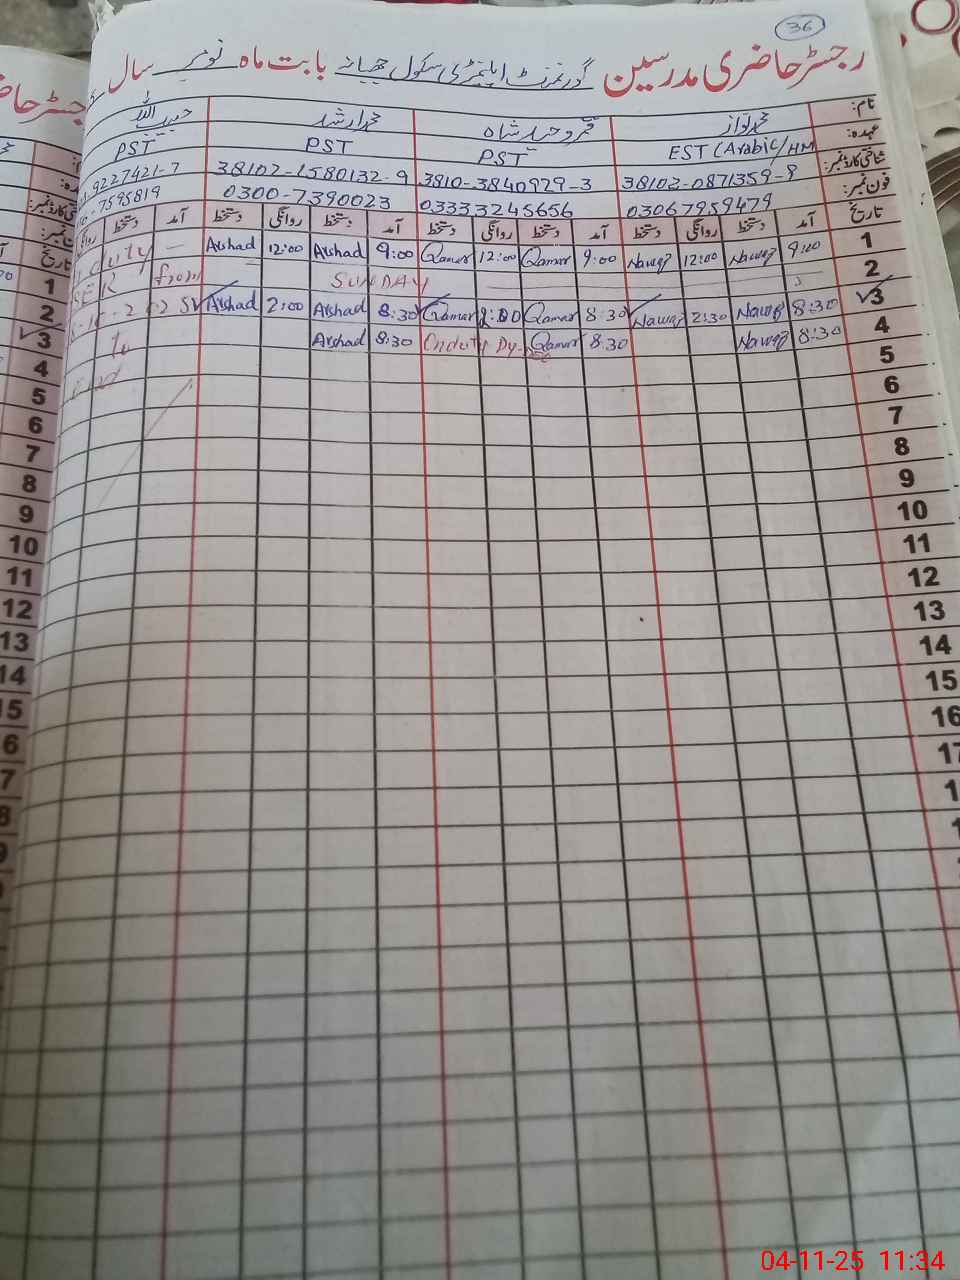 36
رجسٹر حاضری مدرسین گورنمنٹ ایلیمنٹری سکول بابت ماہ نومبر سال
نام: محمد نواز قمر وحید شاہ محمد ارشد حبیب اللہ
عہدہ: EST (Arabic/HM PST PST PST
شناختی کارڈ نمبر: 38102-0871359-8 3810-3840929-3 38102-1580132-9 9227421-7
فون نمبر: 03067959479 03333245656 0300-7390023 7595819
تاریخ آمد دستخط روانگی دستخط آمد دستخط روانگی دستخط آمد دستخط روانگی دستخط آمد دستخط روانگی
1 9:00 Nawaz 12:00 Nawaz 9:00 Qamar 12:00 Qamar 9:00 Arshad 12:00 Arshad — duty
2 SUNDAY from SER
3 8:30 Nawaz 2:30 Nawaz 8:30 Qamar 2:00 Qamar 8:30 Arshad 2:00 Arshad
4 8:30 Nawaz 8:30 Qamar Onduty 8:30 Arshad to
5
6
7
8
9
10
11
12
13
14
15
16
17
1
2
3
4
5
6
7
8
9
10
11
12
13
14
15
6
7
8
9
04-11-25 11:34